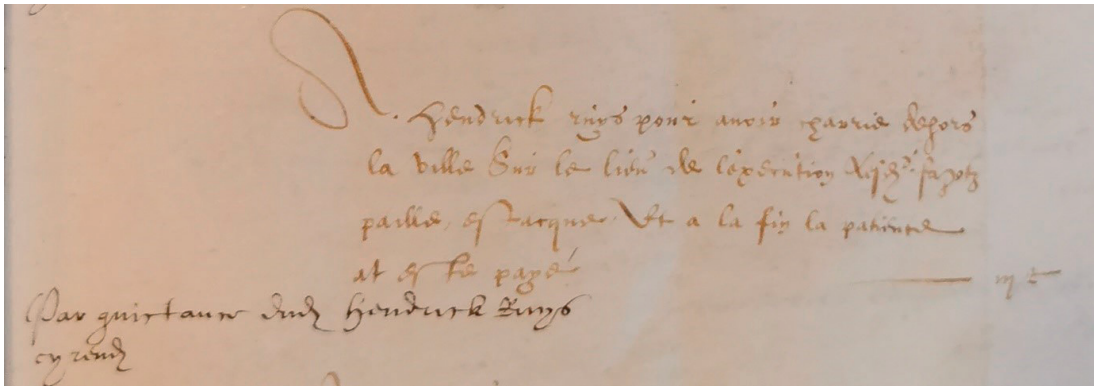 A Hendrick ruys pour avoir charrie dehors
la ville Sur le lieu de lexecution lesdz fagotz
paille, estacque, Et a la fin la patiente
at este payé iij £
Par quictance dudz Hendrick Ruys
cy rendz